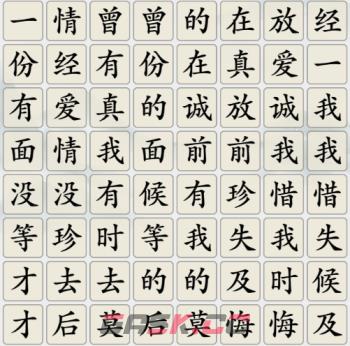 一情曾曾的在放经
份经有份在真爱一
有爱真的诚放诚我
面情我面前前我我
没没有候有珍惜惜
等珍时等我失我失
才去去的的及时候
才后莫后莫悔悔及